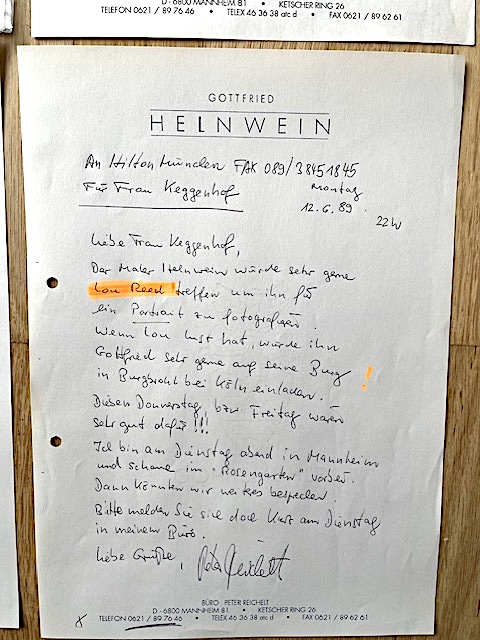 D - 6800 MANNHEIM 81 • KETSCHER RING 26
TELEFON 0621 / 89 76 46 • TELEX 46 36 38 atc d • FAX 0621 / 89 62 61
GOTTFRIED
HELNWEIN
An Hilton München FAX 089/38451845
Für Frau Keggenhof
Montag
12.6.89.
22h
Liebe Frau Keggenhof,
Der Maler Helnwein würde sehr gerne
Lou Reed treffen um ihn für
ein Portrait zu fotografieren.
Wenn Lou Lust hat, würde ihn
Gottfried sehr gerne auf seine Burg
in Burgbrohl bei Köln einladen. !
Diesen Donnerstag bzw. Freitag wären
sehr gut dafür!!!
Ich bin am Dienstag abend in Mannheim
und schaue im "Rosengarten" vorbei.
Dann könnten wir weiteres besprechen.
Bitte melden Sie sich doch kurz am Dienstag
in meinem Büro.
Liebe Grüße, Peter Reichelt
BÜRO PETER REICHELT
D - 6800 MANNHEIM 81 • KETSCHER RING 26
TELEFON 0621 / 89 76 46 • TELEX 46 36 38 atc d • FAX 0621 / 89 62 61